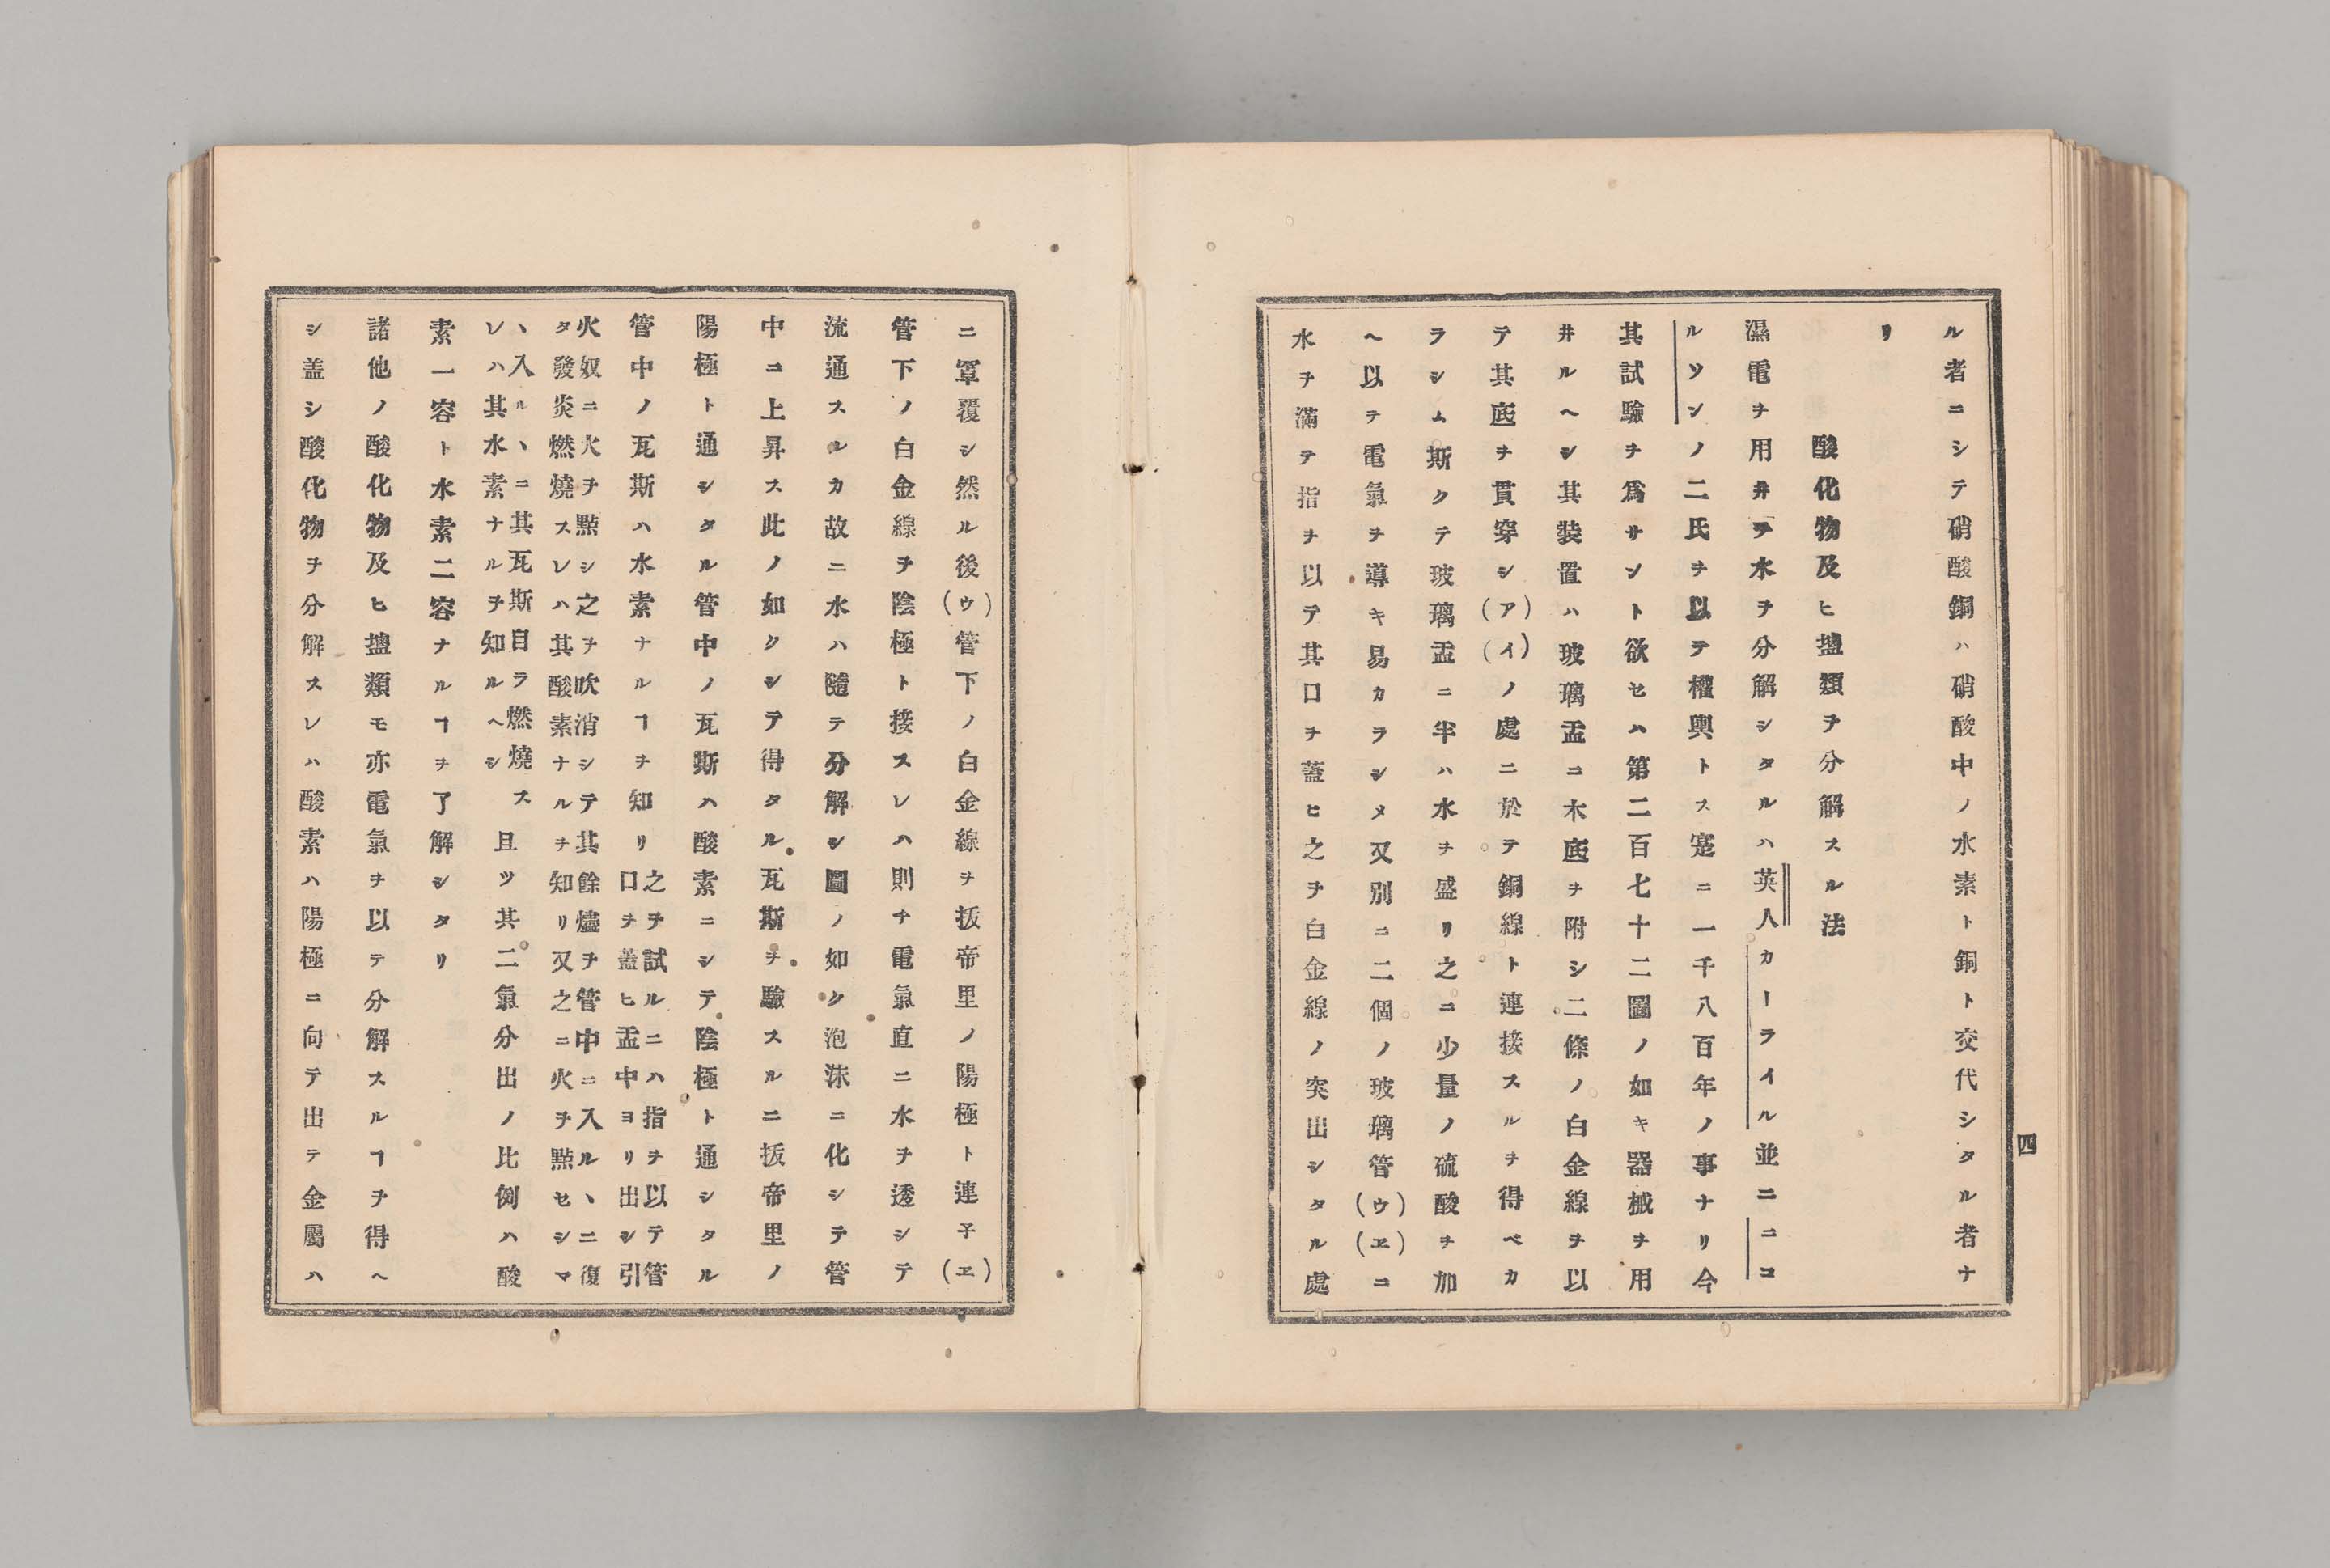 ル者ニシテ硝酸銅ハ硝酸中ノ水素ト銅ト交代シタル者ナ
リ
酸化物及ヒ鹽類ヲ分解スル法
濕電ヲ用井テ水ヲ分解シタルハ英人カーライル並ニニコ
ルソンノ二氏ヲ以テ權輿トス寔ニ一千八百年ノ事ナリ今
其試驗ヲ爲サント欲セハ第二百七十二圖ノ如キ器械ヲ用
井ルヘシ其裝置ハ玻璃盂ニ木底ヲ附シ二條ノ白金線ヲ以
テ其底ヲ貫穿シ(ア)(イ)ノ處ニ於テ銅線ト連接スルヲ得ベカ
ラシム斯クテ玻璃盂ニ半ハ水ヲ盛リ之ニ少量ノ硫酸ヲ加
ヘ以テ電氣ヲ導キ易カラシメ又別ニ二個ノ玻璃管(ウ)(ヱ)ニ
水ヲ滿テ指ヲ以テ其口ヲ蓋ヒ之ヲ白金線ノ突出シタル處
四
ニ罩覆シ然ル後(ウ)管下ノ白金線ヲ抜帝里ノ陽極ト連子(ヱ)
管下ノ白金線ヲ陰極ト接スレハ則チ電氣直ニ水ヲ透シテ
流通スルカ故ニ水ハ隨テ分解シ圖ノ如ク泡沫ニ化シテ管
中ニ上昇ス此ノ如クシテ得タル瓦斯ヲ驗スルニ抜帝里ノ
陽極ト通シタル管中ノ瓦斯ハ酸素ニシテ陰極ト通シタル
管中ノ瓦斯ハ水素ナルヿヲ知リ
之ヲ試ルニハ指ヲ以テ管
口ヲ蓋ヒ盂中ヨリ出シ引
火奴ニ火ヲ點シ之ヲ吹消シテ其餘燼ヲ管中ニ入ルヽニ復
タ發炎燃燒スレハ其酸素ナルヲ知リ又之ニ火ヲ點セシマ
ヽ入ルヽニ其瓦斯自ラ燃燒ス
レハ其水素ナルヲ知ルヘシ
且ツ其二氣分出ノ比例ハ酸
素一容ト水素二容ナルヿヲ了解シタリ
諸他ノ酸化物及ヒ鹽類モ亦電氣ヲ以テ分解スルヿヲ得ヘ
シ盖シ酸化物ヲ分解スレハ酸素ハ陽極ニ向テ出テ金屬ハ